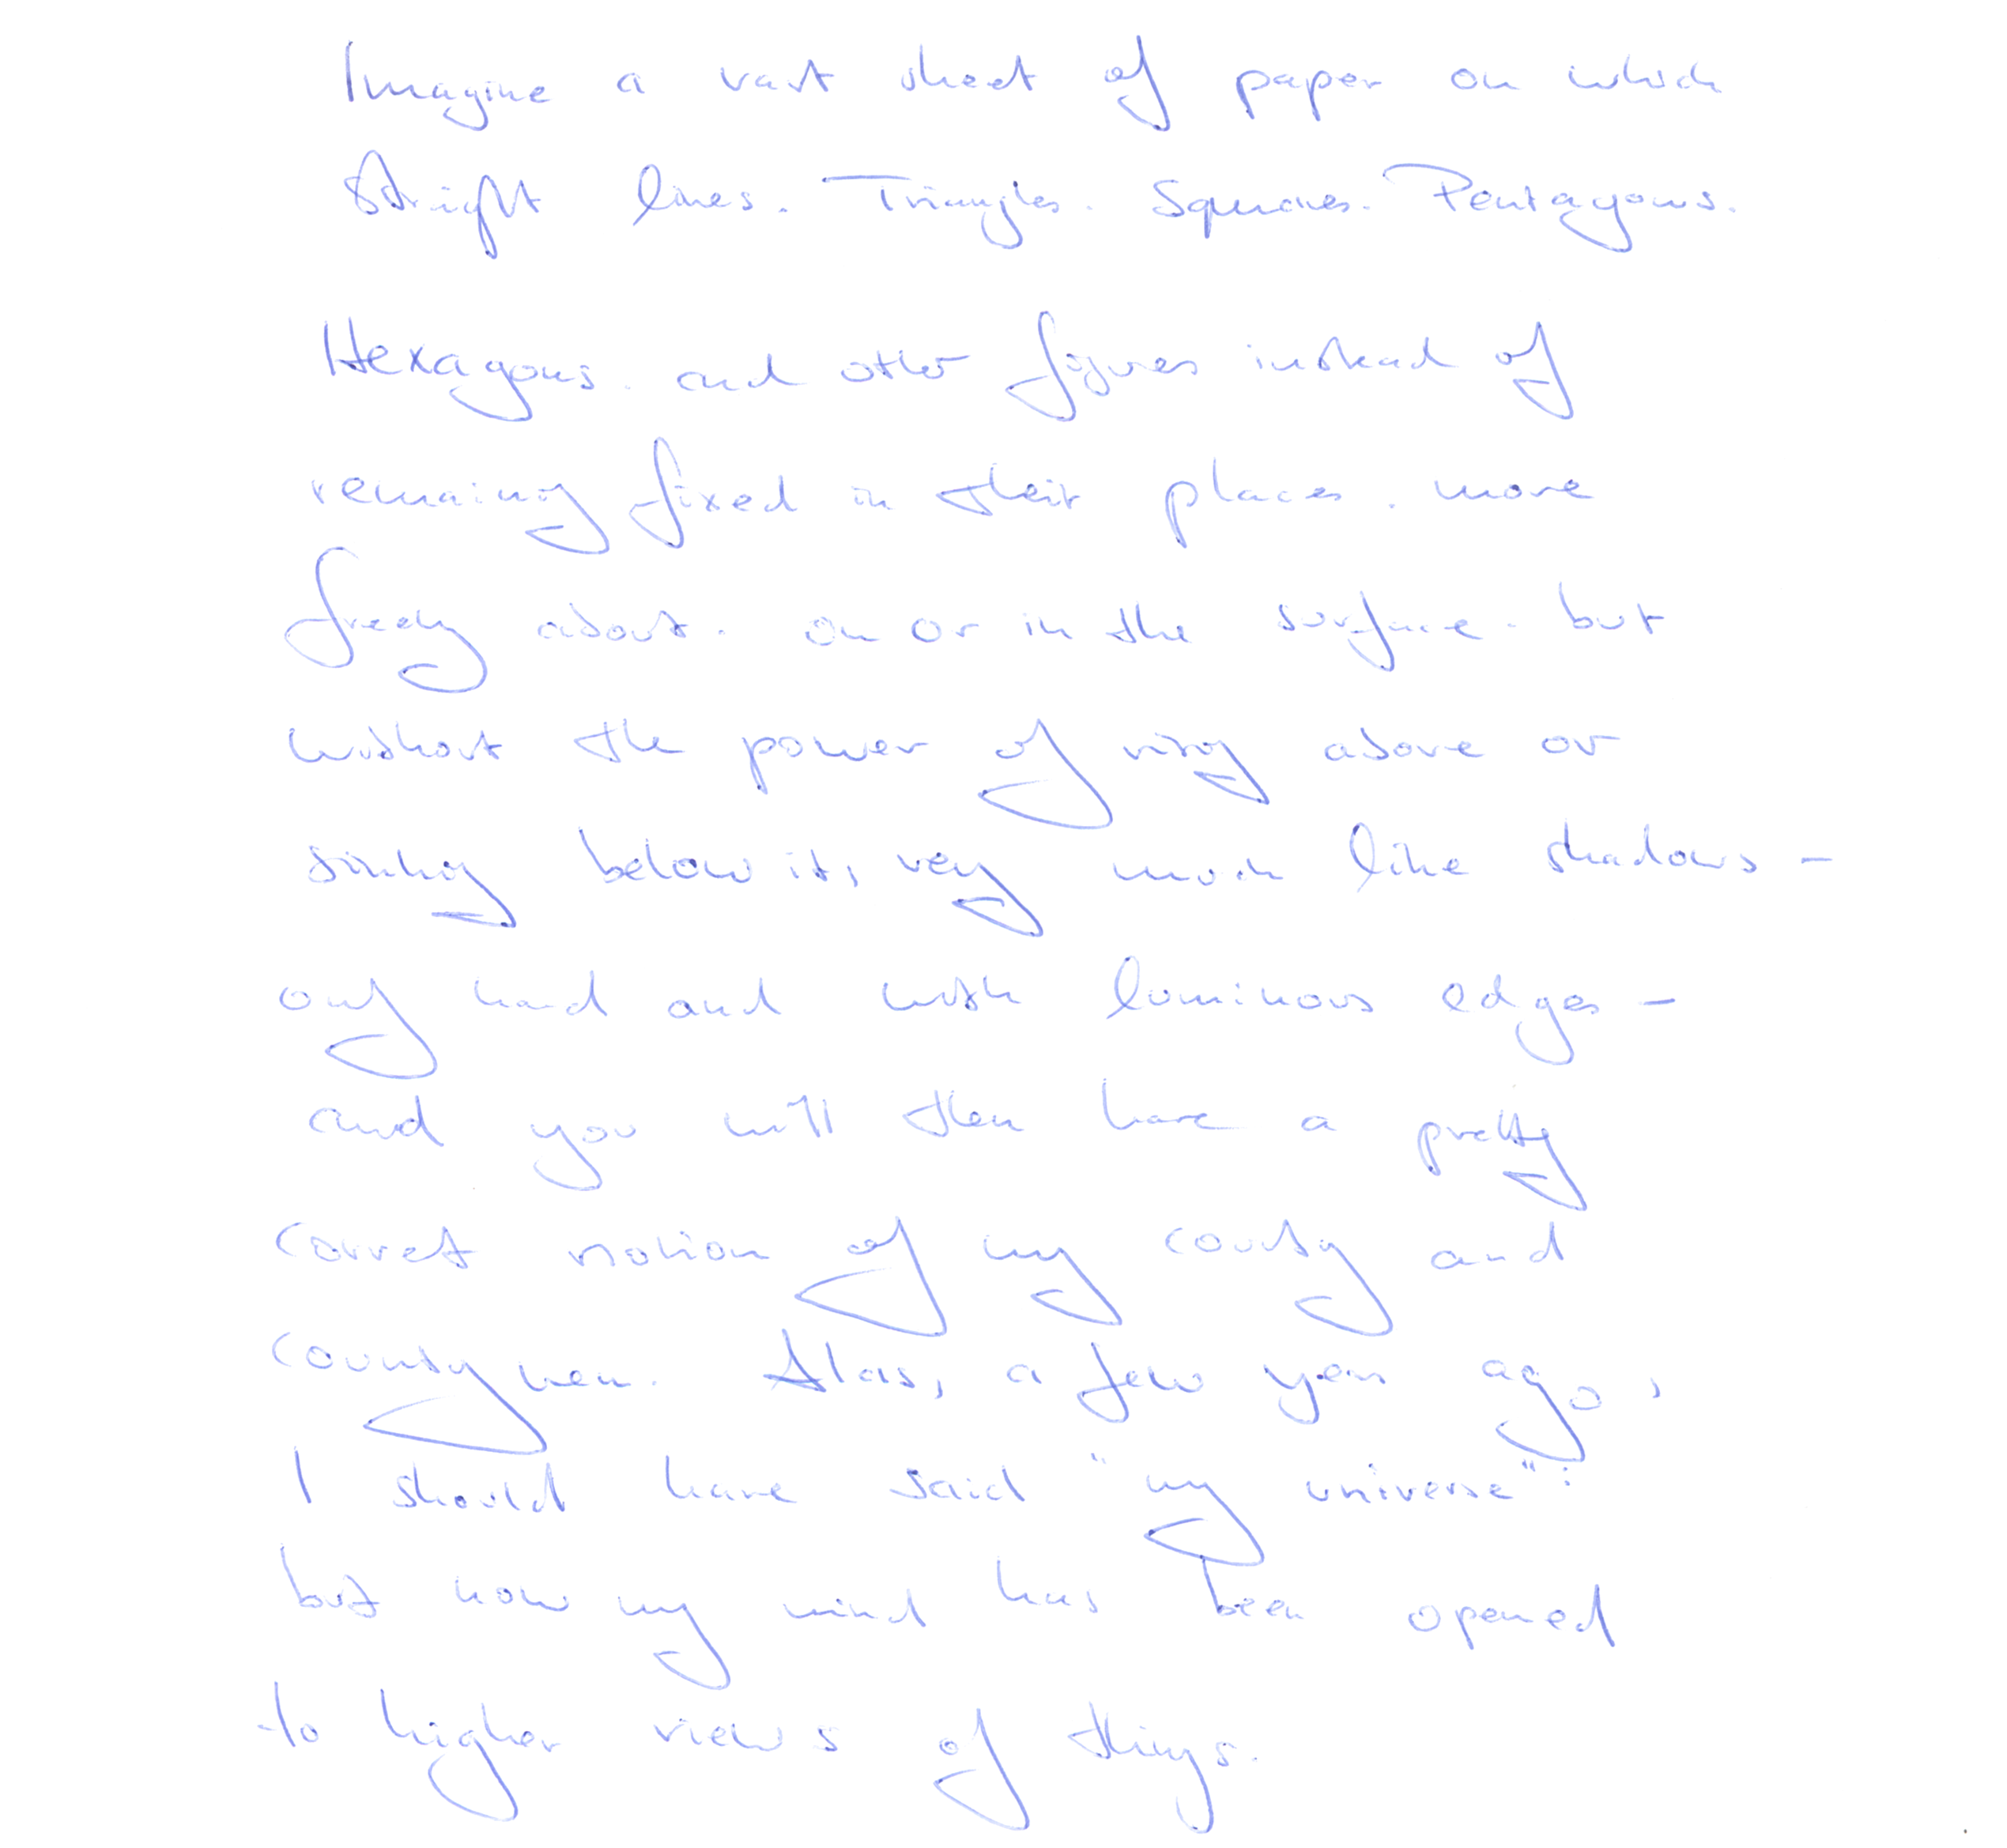 Imagine a vast sheet of paper on which
Straight lines. Triangles. Squares. Pentagons.
Hexagons. and other figures instead of
remaining fixed in their places. move
freely about. on or in the surface. but
without the power of rising above or
sinking below it, very much like shadows -
only hard and with luminous edges -
and you will then have a pretty
correct notion of my country and
countrymen. Alas, a few years ago,
I should have said "my universe":
but now my mind has been opened
to higher views of things.